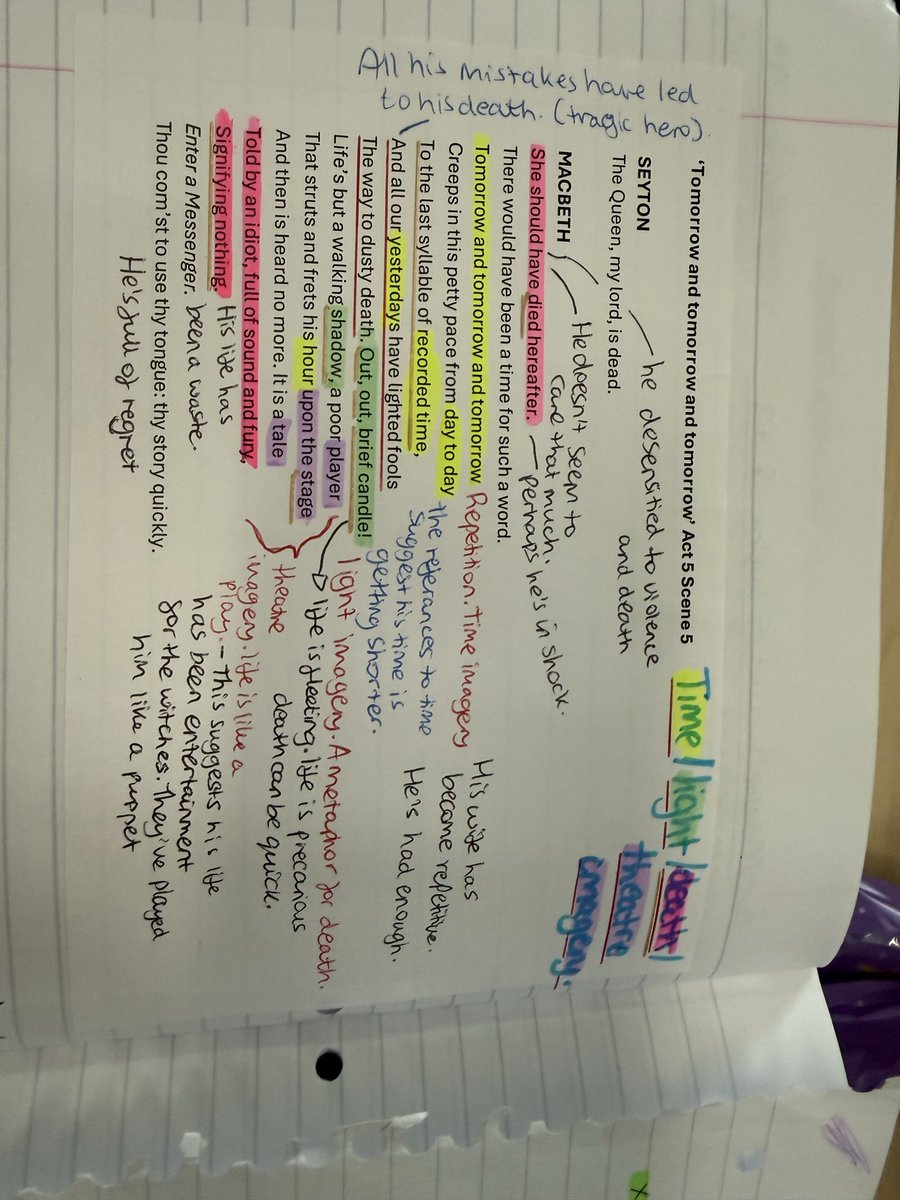 All his mistakes have led
to his death. (tragic hero).
'Tomorrow and tomorrow and tomorrow' Act 5 Scene 5
Time/light/death/
theatre
imagery.
SEYTON
The Queen, my lord, is dead.
he desensitied to violence
and death
MACBETH
He doesn't seem to
care that much.
She should have died hereafter.
perhaps he's in shock.
There would have been a time for such a word.
Tomorrow and tomorrow and tomorrow
Repetition. Time imagery
Creeps in this petty pace from day to day
To the last syllable of recorded time,
the referances to time
suggest his time is
getting shorter.
His wife has
become repetitive.
He's had enough.
And all our yesterdays have lighted fools
The way to dusty death. Out, out, brief candle!
light imagery. A metaphor for death.
Life's but a walking shadow, a poor player
life is fleeting. life is precarious
death can be quick.
That struts and frets his hour upon the stage
And then is heard no more. It is a tale
theatre
imagery. life is like a
play. - This suggests his life
has been entertainment
for the witches. They've played
him like a puppet
Told by an idiot, full of sound and fury,
Signifying nothing.
His life has
been a waste.
Enter a Messenger.
Thou com'st to use thy tongue: thy story quickly.
He's full of regret
x